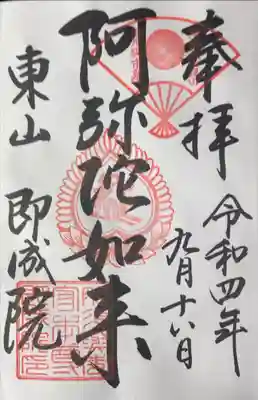 奉拝
令和四年
九月十八日
阿弥陀如来
東山 即成院